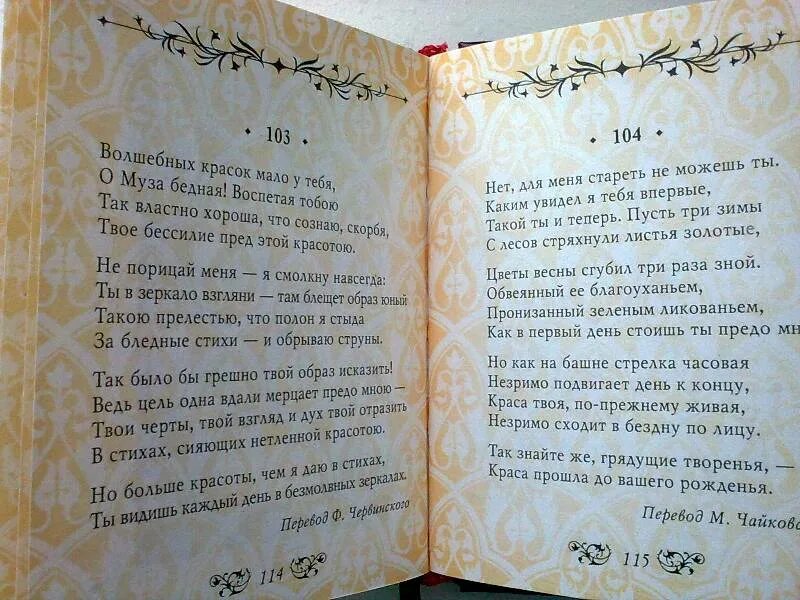 103
Волшебных красок мало у тебя,
О Муза бедная! Воспетая тобою
Так властно хороша, что сознаю, скорбя,
Твое бессилие пред этой красотою.
Не порицай меня — я смолкну навсегда:
Ты в зеркало взгляни — там блещет образ юный
Такою прелестью, что полон я стыда
За бледные стихи — и обрываю струны.
Так было бы грешно твой образ исказить!
Ведь цель одна вдали мерцает предо мною —
Твои черты, твой взгляд и дух твой отразить
В стихах, сияющих нетленной красотою.
Но больше красоты, чем я даю в стихах,
Ты видишь каждый день в безмолвных зеркалах.
Перевод Ф. Червинского
114
104
Нет, для меня стареть не можешь ты.
Каким увидел я тебя впервые,
Такой ты и теперь. Пусть три зимы
С лесов стряхнули листья золотые,
Цветы весны сгубил три раза зной.
Обвеянный ее благоуханьем,
Пронизанный зеленым ликованьем,
Как в первый день стоишь ты предо мн
Но как на башне стрелка часовая
Незримо подвигает день к концу,
Краса твоя, по-прежнему живая,
Незримо сходит в бездну по лицу.
Так знайте же, грядущие творенья, —
Краса прошла до вашего рожденья.
Перевод М. Чайков
115